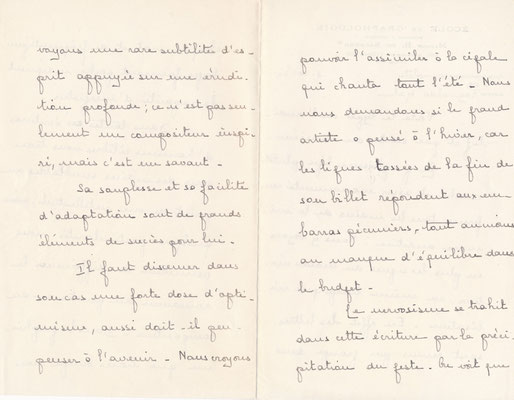 voyons une rare subtilité d'es-
prit appuyée sur une érudi-
tion profonde ; ce n'est pas seu-
lement un compositeur inspi-
ré, mais c'est un savant -
Sa souplesse et sa facilité
d'adaptation sont de grands
éléments de succès pour lui -
Il faut discerner dans
son cas une forte dose d'opti-
misme, aussi doit-il peu
penser à l'avenir - Nous croyons
pouvoir l'assimiler à la cigale
qui chanta tout l'été - Nous
nous demandons si le grand
artiste a pensé à l'hiver, car
les lignes tassées de la fin de
son billet répondent aux em-
barras pécuniers, tout au moins
au manque d'équilibre dans
le budget -
Le nervosisme se trahit
dans cette écriture par la préci-
pitation du geste. On voit que